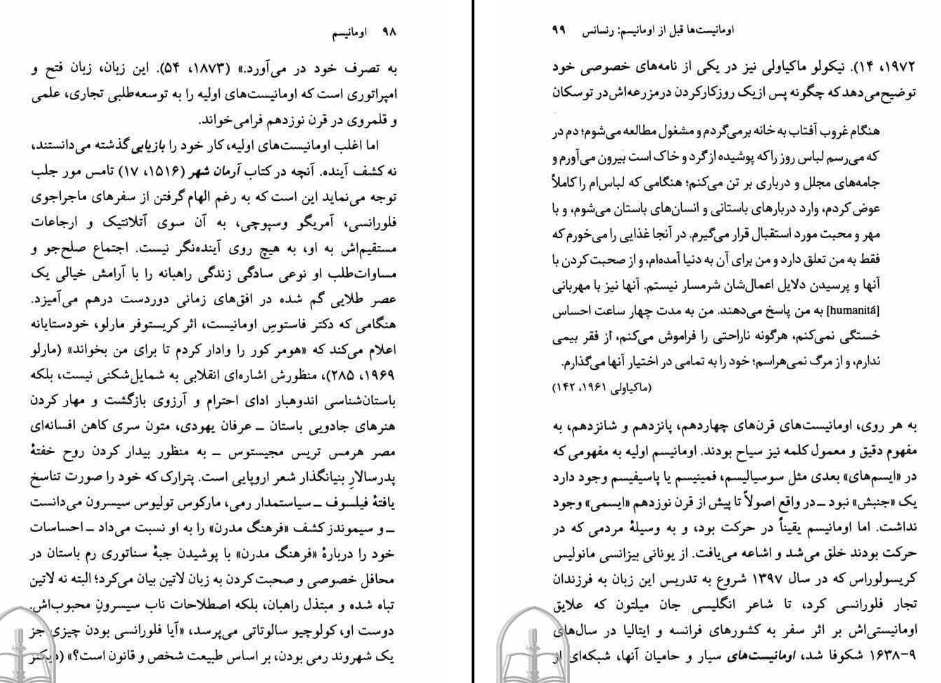 ۹۸ اومانیسم
به تصرف خود در می‌آورد.» (۱۸۷۳، ۵۴). این زبان، زبان فتح و
امپراتوری است که اومانیست‌های اولیه را به توسعه‌طلبی تجاری، علمی
و قلمروی در قرن نوزدهم فرامی‌خواند.
اما اغلب اومانیست‌های اولیه، کار خود را بازیابی گذشته می‌دانستند،
نه کشف آینده. آنچه در کتاب آرمان شهر (۱۵۱۶، ۱۷) تامس مور جلب
توجه می‌نماید این است که به رغم الهام گرفتن از سفرهای ماجراجوی
فلورانسی، آمریگو وسپوچی، به آن سوی آتلانتیک و ارجاعات
مستقیم‌اش به او، به هیچ روی آینده‌نگر نیست. اجتماع صلح‌جو و
مساوات‌طلب او نوعی سادگی زندگی راهبانه را با آرامش خیالی یک
عصر طلایی گم شده در افق‌های زمانی دوردست درهم می‌آمیزد.
هنگامی که دکتر فاستوسِ اومانیست، اثر کریستوفر مارلو، خودستایانه
اعلام می‌کند که «هومر کور را وادار کردم تا برای من بخواند» (مارلو
۱۹۶۹، ۲۸۵)، منظورش اشاره‌ای انقلابی به شمایل‌شکنی نیست، بلکه
باستان‌شناسی اندوهبار ادای احترام و آرزوی بازگشت و مهار کردن
هنرهای جادویی باستان ــ عرفان یهودی، متون سری کاهن افسانه‌ای
مصر هرمس تریس مجیستوس ــ به منظور بیدار کردن روح خفتهٔ
پدرسالارِ بنیانگذار شعر اروپایی است. پترارک که خود را صورت تناسخ
یافتهٔ فیلسوف ــ سیاستمدار رمی، مارکوس تولیوس سیسرون می‌دانست
ــ و سیموندز کشف «فرهنگ مدرن» را به او نسبت می‌داد ــ احساسات
خود را دربارهٔ «فرهنگ مدرن» با پوشیدن جبهٔ سناتوری رم باستان در
محافل خصوصی و صحبت کردن به زبان لاتین بیان می‌کرد؛ البته نه لاتین
تباه شده و مبتذل راهبان، بلکه اصطلاحات ناب سیسرونِ محبوب‌اش.
دوست او، کولوچیو سالوتاتی می‌پرسد، «آیا فلورانسی بودن چیزی جز
یک شهروند رمی بودن، بر اساس طبیعت شخص و قانون است؟»
اومانیست‌ها قبل از اومانیسم: رنسانس ۹۹
۱۹۷۲، ۱۴). نیکولو ماکیاولی نیز در یکی از نامه‌های خصوصی خود
توضیح می‌دهد که چگونه پس از یک روز کار کردن در مزرعه‌اش در توسکان
هنگام غروب آفتاب به خانه برمی‌گردم و مشغول مطالعه می‌شوم؛ دم در
که می‌رسم لباس روز را که پوشیده از گرد و خاک است بیرون می‌آورم و
جامه‌های مجلل و درباری بر تن می‌کنم؛ هنگامی که لباس‌ام را کاملاً
عوض کردم، وارد دربارهای باستانی و انسان‌های باستان می‌شوم، و با
مهر و محبت مورد استقبال قرار می‌گیرم. در آنجا غذایی را می‌خورم که
فقط به من تعلق دارد و من برای آن به دنیا آمده‌ام، و از صحبت کردن با
آنها و پرسیدن دلایل اعمال‌شان شرمسار نیستم. آنها نیز با مهربانی
[humanitá] به من پاسخ می‌دهند. من به مدت چهار ساعت احساس
خستگی نمی‌کنم، هرگونه ناراحتی را فراموش می‌کنم، از فقر بیمی
ندارم، و از مرگ نمی‌هراسم؛ خود را به تمامی در اختیار آنها می‌گذارم.
(ماکیاولی ۱۹۶۱، ۱۴۲)
به هر روی، اومانیست‌های قرن‌های چهاردهم، پانزدهم و شانزدهم، به
مفهوم دقیق و معمول کلمه نیز سیاح بودند. اومانیسم اولیه به مفهومی که
در «ایسم‌های» بعدی مثل سوسیالیسم، فمینیسم یا پاسیفیسم وجود دارد
یک «جنبش» نبود ــ در واقع اصولاً تا پیش از قرن نوزدهم «ایسمی» وجود
نداشت. اما اومانیسم یقیناً در حرکت بود، و به وسیلهٔ مردمی که در
حرکت بودند خلق می‌شد و اشاعه می‌یافت. از یونانی بیزانسی مانولیس
کریسولوراس که در سال ۱۳۹۷ شروع به تدریس این زبان به فرزندان
تجار فلورانسی کرد، تا شاعر انگلیسی جان میلتون که علایق
اومانیستی‌اش بر اثر سفر به کشورهای فرانسه و ایتالیا در سال‌های
۱۶۳۸-۹ شکوفا شد، اومانیست‌های سیار و حامیان آنها، شبکه‌ای از